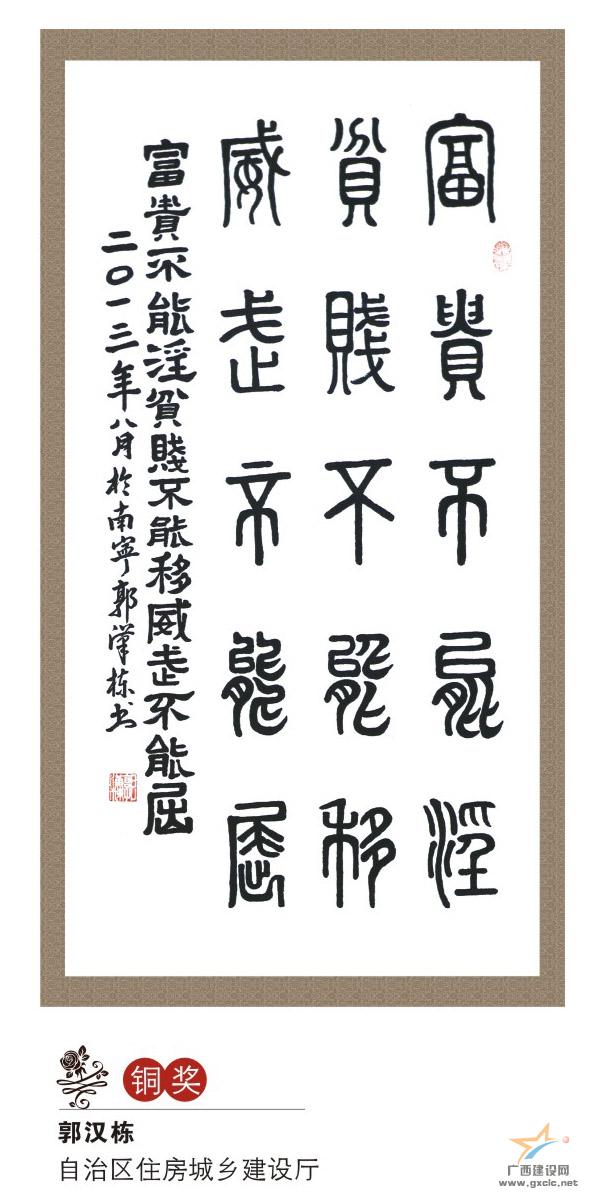 富貴不能淫
貧賤不能移
威武不能屈
富貴不能淫貧賤不能移威武不能屈
二〇一三年八月於南寧郭漢栋书
铜奖
郭汉栋
自治区住房城乡建设厅
广西建设网
www.gxcic.net